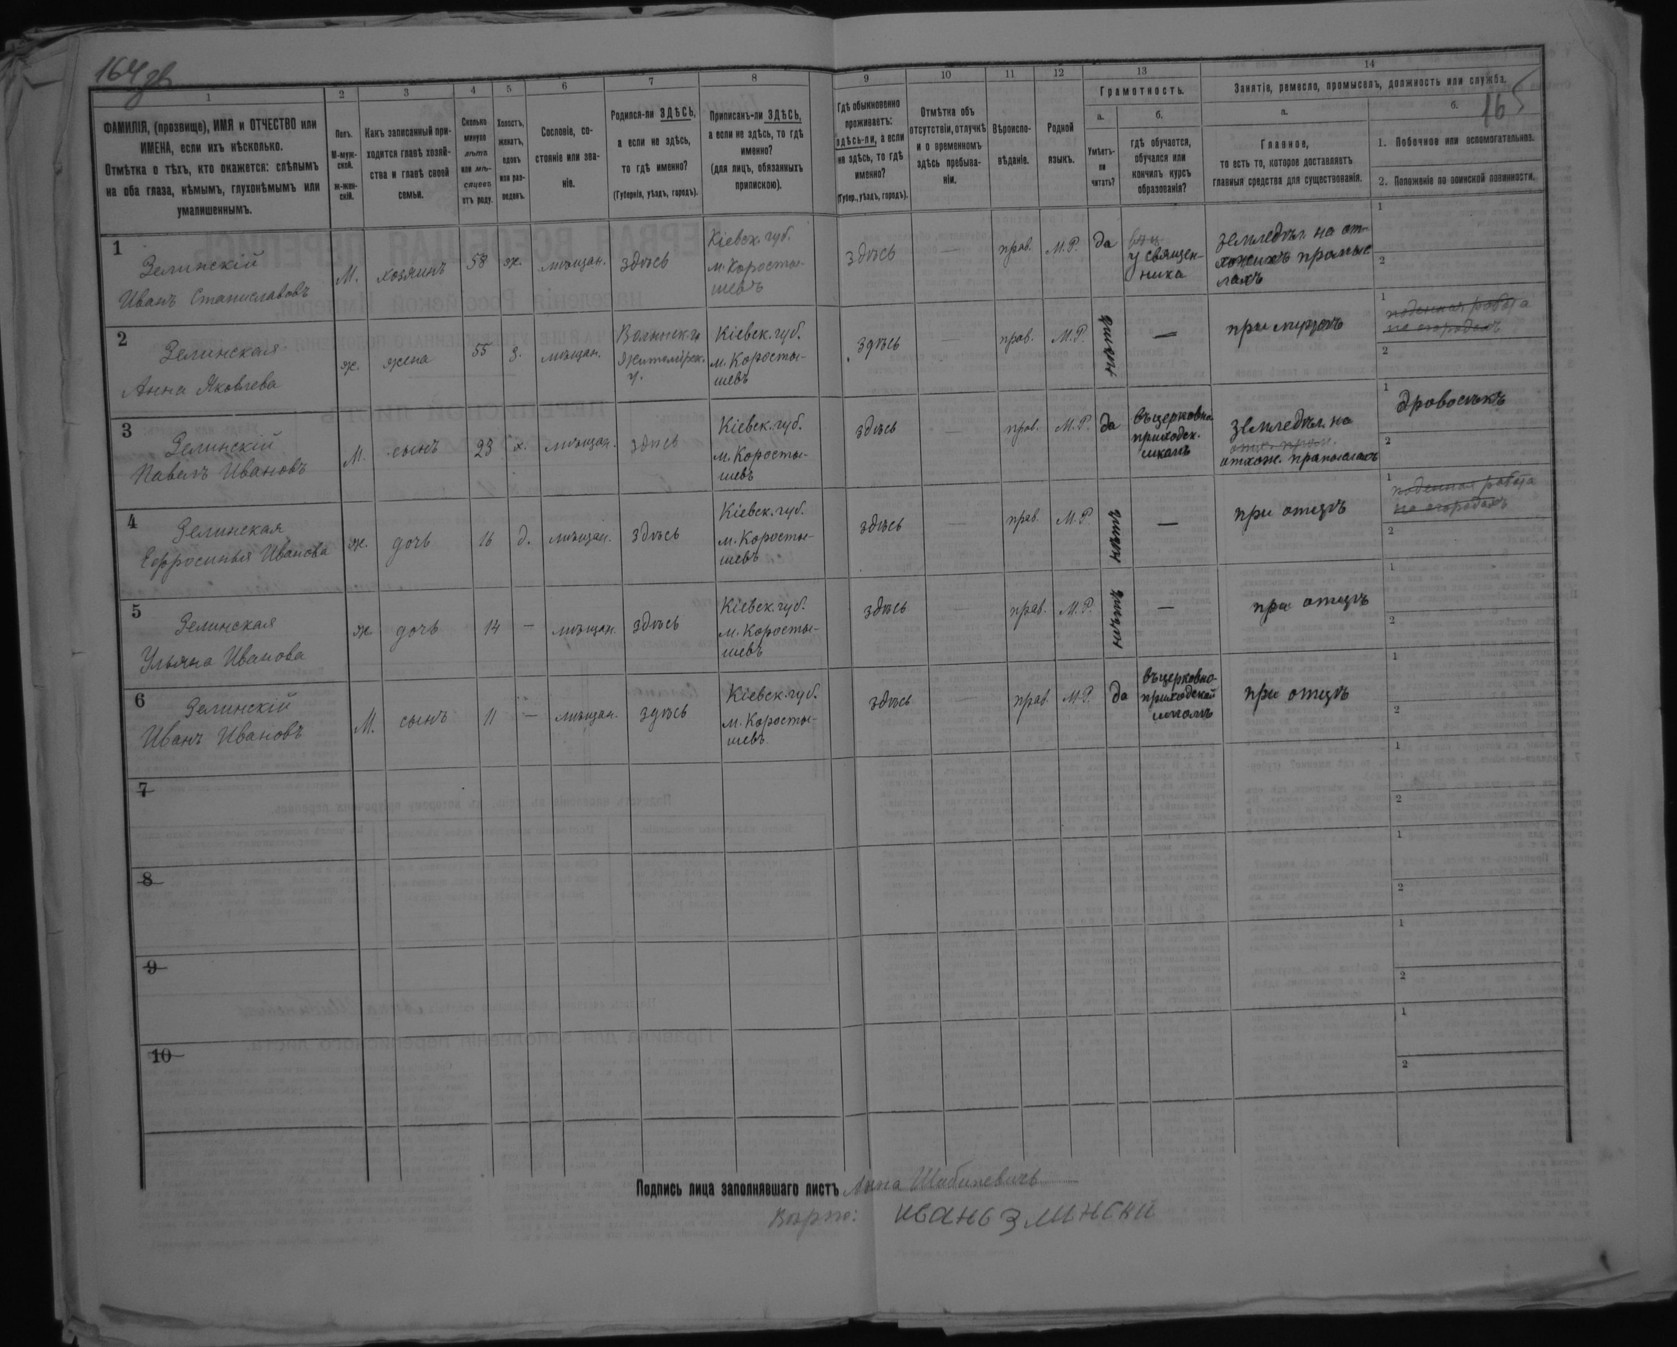 164 зв
165
1
2
3
4
5
6
7
8
9
10
11
12
13
14
ФАМИЛІЯ, (прозвище), ИМЯ и ОТЧЕСТВО или
ИМЕНА, если ихъ нѣсколько.
Отмѣтка о тѣхъ, кто окажется: слѣпымъ
на оба глаза, нѣмымъ, глухонѣмымъ или
умалишеннымъ.
Полъ.
М-муж-
ской.
ж-жен-
скій.
Какъ записанный при-
ходится главѣ хозяй-
ства и главѣ своей
семьи.
Сколько
минуло
лѣтъ
или мѣ-
сяцевъ
отъ роду.
Холостъ,
женатъ,
вдовъ
или раз-
веденъ.
Сословіе, со-
стояніе или зва-
ніе.
Родился-ли ЗДѢСЬ,
а если не здѣсь,
то гдѣ именно?
(Губернія, уѣздъ, городъ).
Приписанъ-ли ЗДѢСЬ,
а если не здѣсь, то гдѣ
именно?
(для лицъ, обязанныхъ
припискою).
Гдѣ обыкновенно
проживаетъ:
здѣсь-ли, а если
не здѣсь, то гдѣ
именно?
(Губер., уѣздъ, городъ).
Отмѣтка объ
отсутствіи, отлучкѣ
и о временномъ
здѣсь пребыва-
ніи.
Вѣроиспо-
вѣданіе.
Родной
языкъ.
Грамотность.
а.
Умѣетъ-
ли
читать?
б.
гдѣ обучается,
обучался или
кончилъ курсъ
образованія?
Занятіе, ремесло, промыселъ, должность или служба.
а.
Главное,
то есть то, которое доставляетъ
главныя средства для существованія.
б.
1. Побочное или вспомогательное.
2. Положеніе по воинской повинности.
1
Зелинскій
Иванъ Станиславовъ
М.
хозяинъ
58
ж.
мѣщан.
здѣсь
Кіевск. губ.
м. Коросты-
шевъ
здѣсь
—
прав.
М.Р.
да
у священ-
ника
земледѣл. на от-
хожихъ промыс
лахъ
1
2
2
Зелинская
Анна Яковлева
ж.
жена
55
з.
мѣщан.
Волынск. г.
Житомірск.
у.
Кіевск. губ.
м. Коросты-
шевъ
здѣсь
—
прав.
М.Р.
нѣтъ
—
при мужѣ
1
поденная работа
на огородахъ
2
3
Зелинскій
Павелъ Ивановъ
М.
сынъ
23
х.
мѣщан.
здѣсь
Кіевск. губ.
м. Коросты-
шевъ
здѣсь
—
прав.
М.Р.
да
въ церковно
приходск.
школѣ
земледѣл. на
отхож. промыслахъ
1
дровосѣкъ
2
4
Зелинская
Ефросинья Иванова
ж.
дочь
16
д.
мѣщан.
здѣсь
Кіевск. губ.
м. Коросты-
шевъ
здѣсь
прав.
М.Р.
нѣтъ
—
при отцѣ
1
поденная работа
на огородахъ
2
5
Зелинская
Ульяна Иванова
ж.
дочь
14
—
мѣщан.
здѣсь
Кіевск. губ.
м. Коросты-
шевъ
здѣсь
—
прав.
М.Р.
нѣтъ
—
при отцѣ
1
2
6
Зелинскій
Иванъ Ивановъ
М.
сынъ
11
—
мѣщан.
здѣсь
Кіевск. губ.
м. Коросты-
шевъ
здѣсь
—
прав.
М.Р.
да
въ церковно-
приходской
школѣ
при отцѣ
1
2
7
1
2
8
1
2
9
1
2
10
1
2
Подпись лица заполнявшаго листъ Анна Шибиневичъ
Вѣрно: иванъ злински